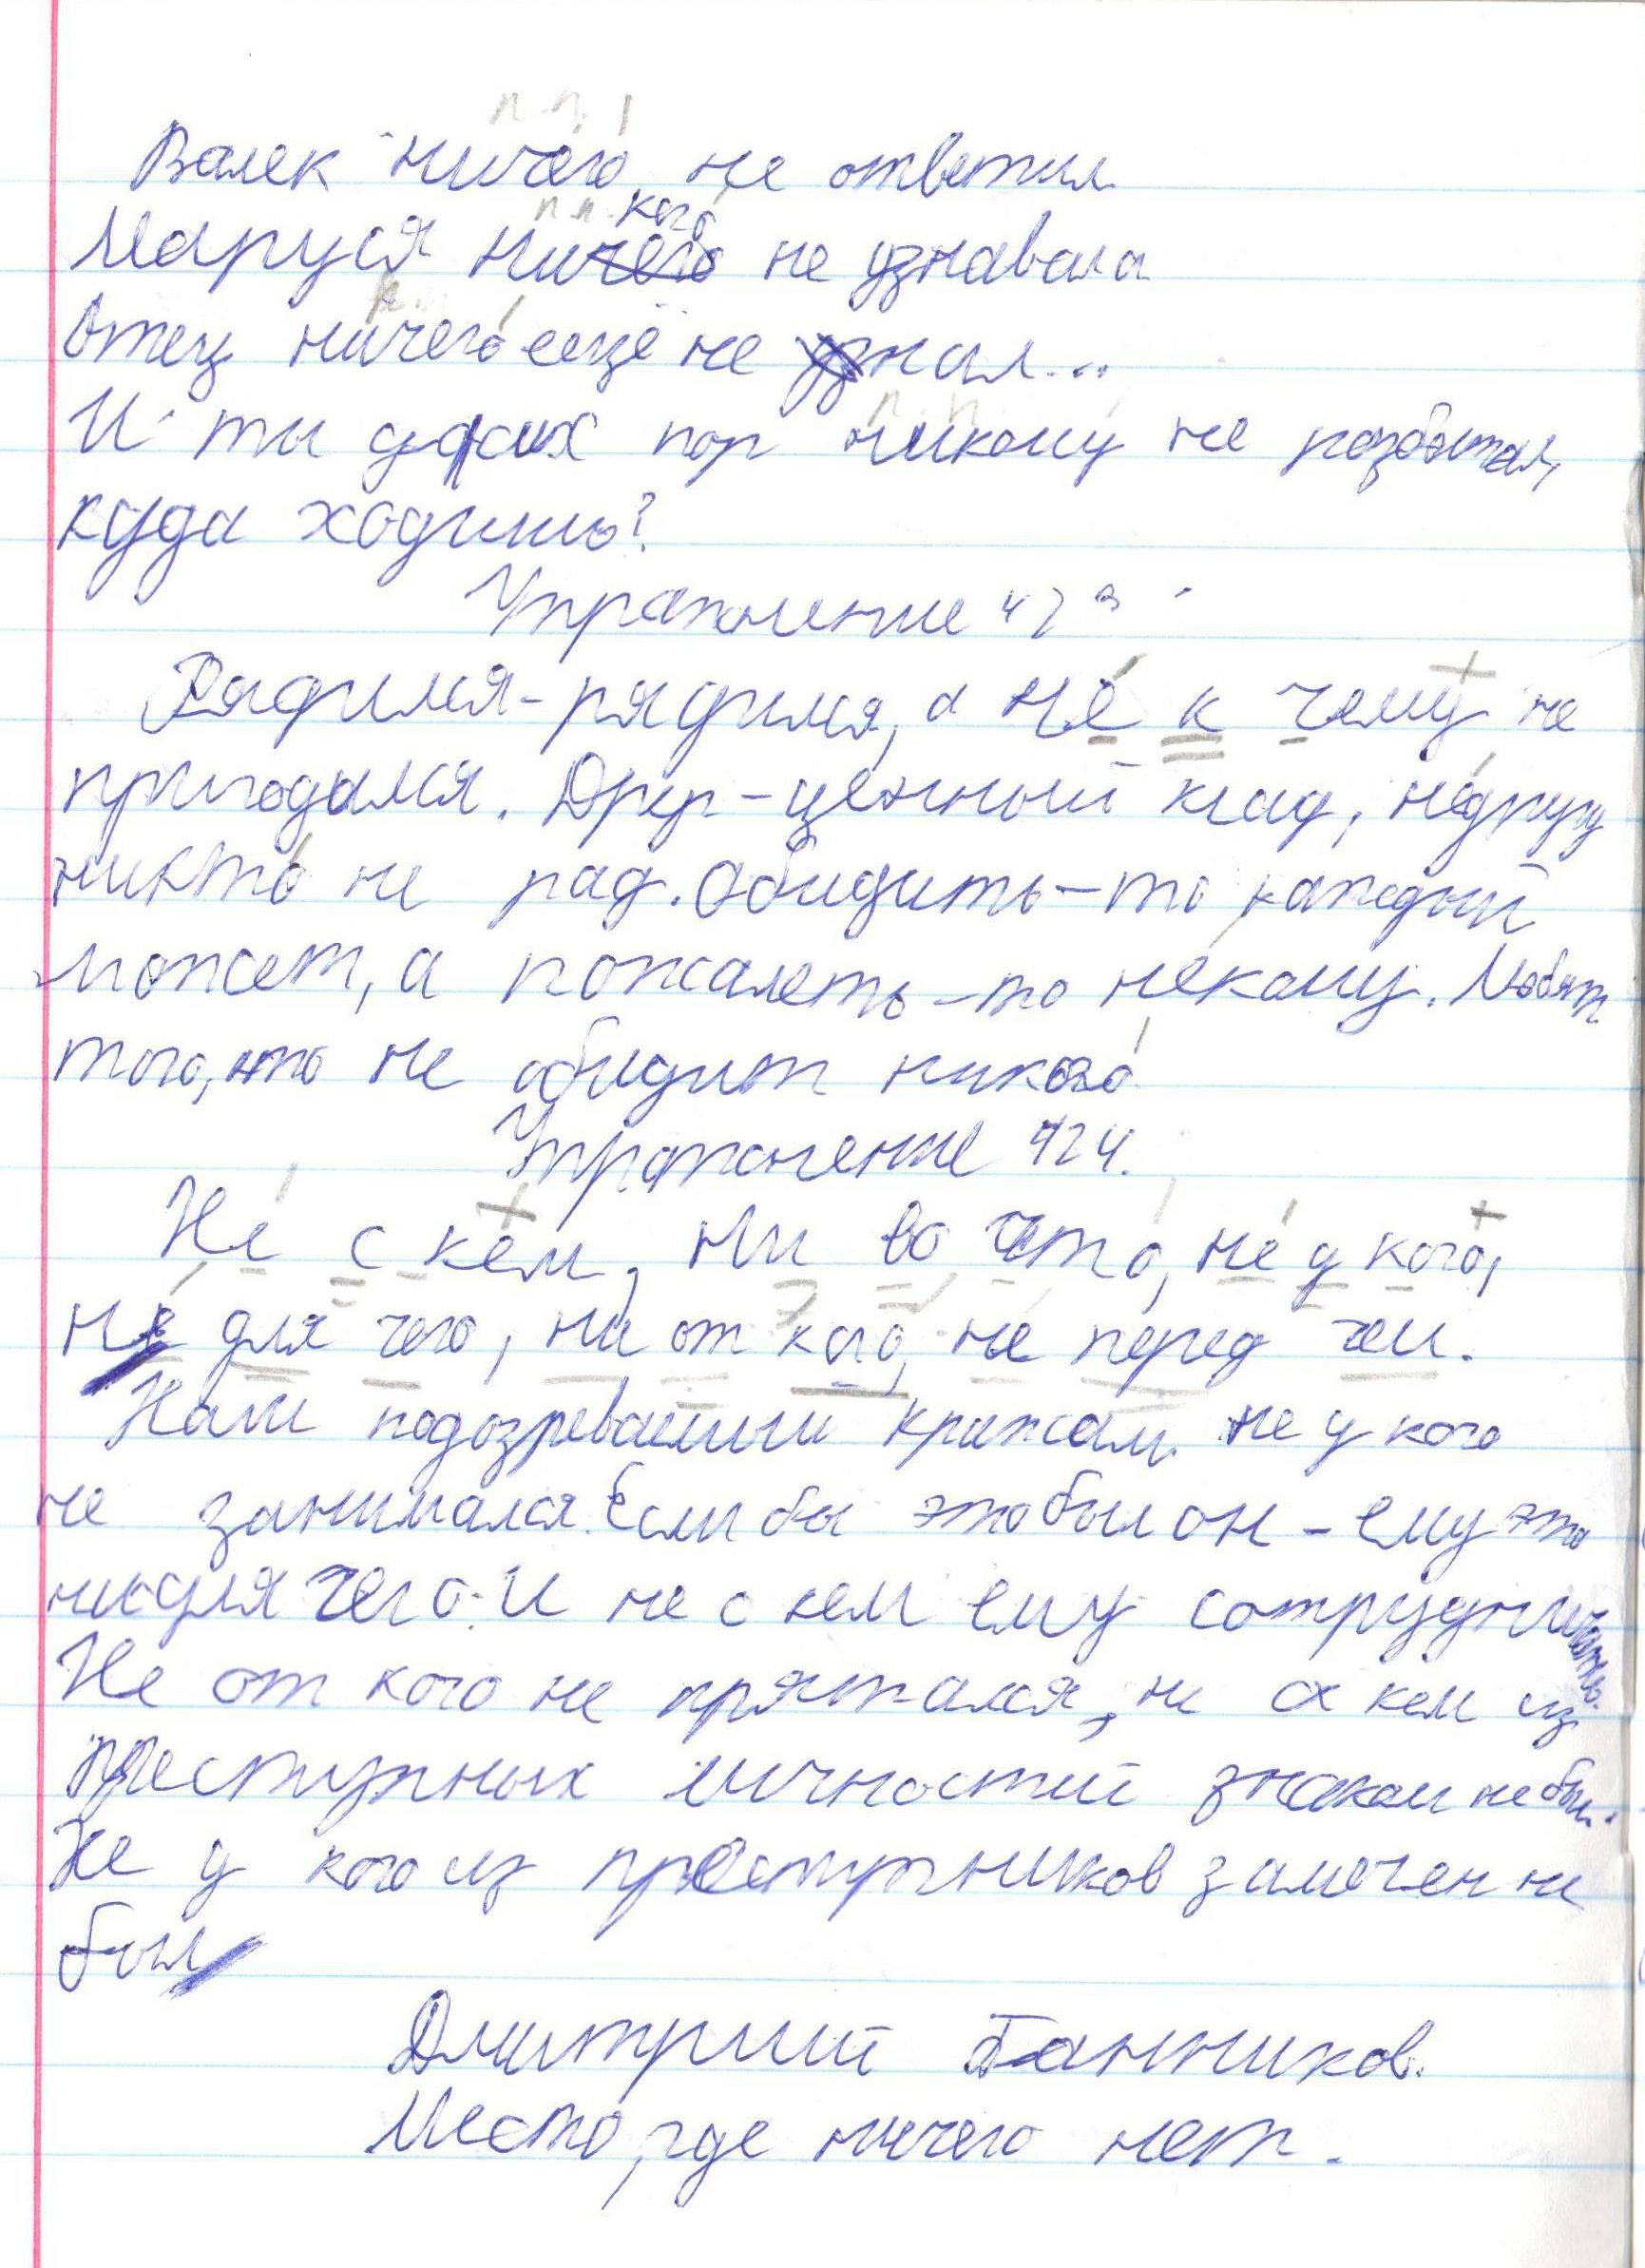 п.п.
Валек ничего не ответил
Маруся никого не узнавала
п.п.
Отец ничего ещё не знал...
п.п.
И ты до сих пор никому не разболтал,
куда ходишь?
Упражнение 423
Рядимся-рядимся, а не к чему не
пригодимся. Друг-ценный клад, недругу
никто не рад. Обидить-то каждый
может, а пожалеть-то некому. Любят
того, кто не обидит никого
Упражнение 424.
Не с кем, ни во что, не у кого,
не для чего, ни от кого, не перед чем.
Наш подозреваемый кражам не у кого
не занимался. Если бы это был он - ему это
ни для чего. И не с кем ему сотрудничать.
Не от кого не прятался, не с кем из
преступных личностий знаком не был.
Не у кого из преступников замечен не
был
Дмитрий Банников.
Место, где ничего нет.